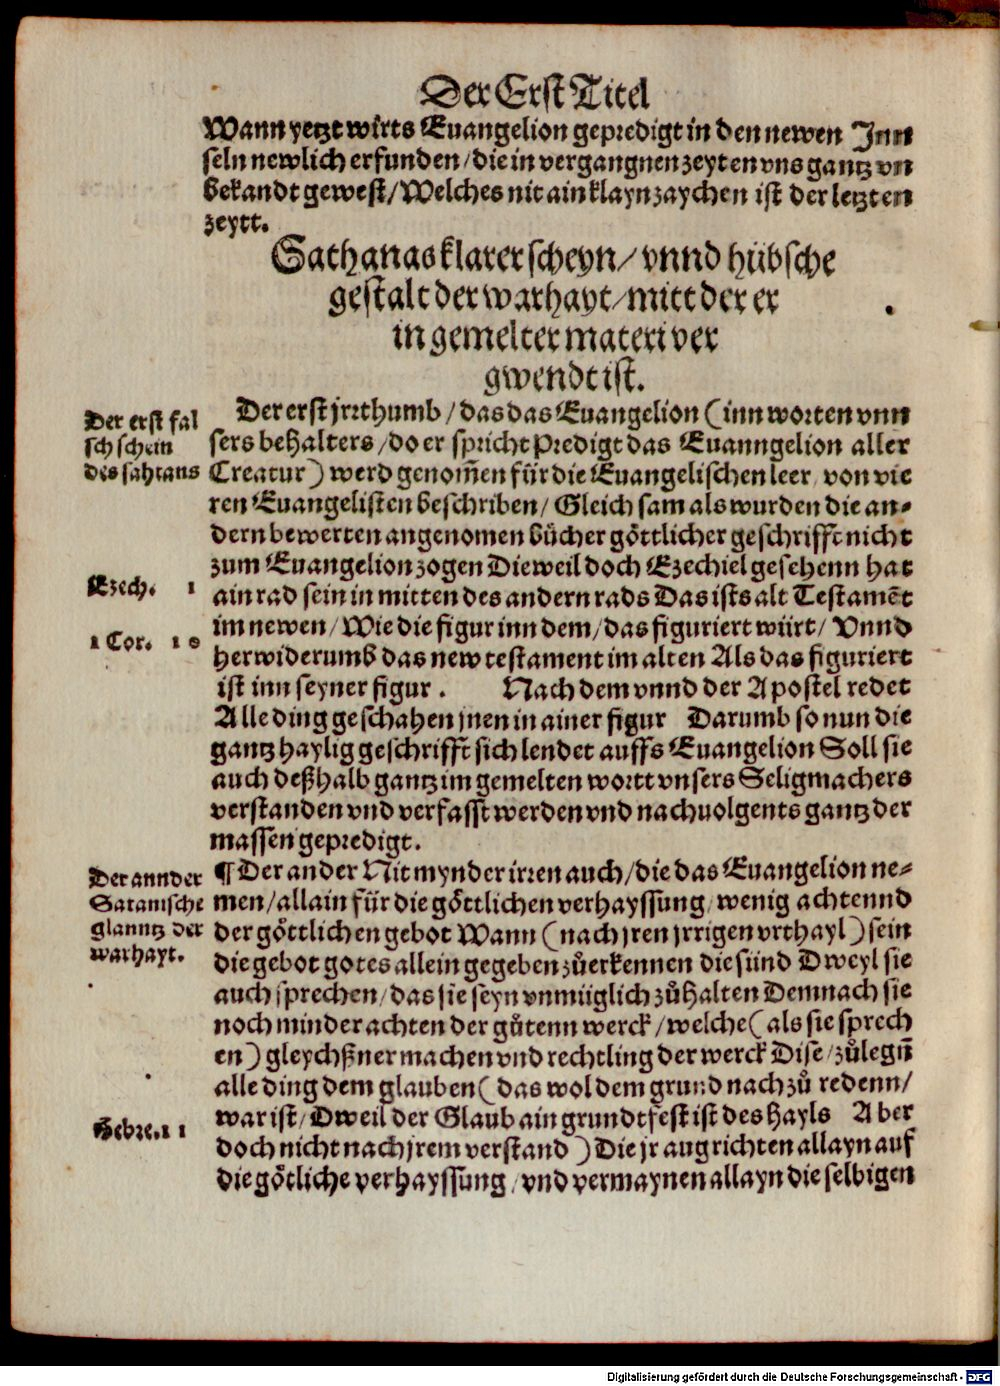 Der Erst Titel
Wann yetzt wirts Euangelion gepredigt in den newen Jnn
seln newlich erfunden/die in vergangnen zeyten vns gantz vn
bekandt gewest/Welches nit ain klayn zaychen ist der letzten
zeytt.
Sathanas klarer scheyn/vnnd hübsche
gestalt der warhayt/mitt der er
in gemelter materi ver
gwendt ist.
Der erst fal
sch schein
des sahtans
Der erst jrrthumb/das das Euangelion (inn worten vnn
sers behalters/do er spricht Predigt das Euanngelion aller
Creatur) werd genom̄en für die Euangelischen leer, von vie
ren Euangelisten beschriben/Gleich sam als wurden die an-
dern bewerten angenomen bücher göttlicher geschrifft nicht
zum Euangelion zogen Dieweil doch Ezechiel gesehenn hat
Ezech. 1
ain rad sein in mitten des andern rads Das ists alt Testamēt
im newen/Wie die figur inn dem/das figuriert würt/Vnnd
1 Cor. 10
herwiderumb das new testament im alten Als das figuriert
ist inn seyner figur. Nach dem vnnd der Apostel redet
Alle ding geschahen jnen in ainer figur Darumb so nun die
gantz haylig geschrifft sich lendet auffs Euangelion Soll sie
auch deßhalb gantz im gemelten wortt vnsers Seligmachers
verstanden vnd verfasst werden vnd nachuolgents gantz der
massen gepredigt.
Der annder
Satanische
glanntz der
warhayt.
¶ Der ander Nit mynder irren auch/die das Euangelion ne-
men/allain für die göttlichen verhayssung, wenig achtennd
der göttlichen gebot Wann (nach jren jrrigen vrthayl) sein
die gebot gotes allein gegeben zůerkennen die sünd Dweyl sie
auch sprechen/das sie seyn vnmüglich zůhalten Demnach sie
noch minder achten der gůtenn werck/welche (als sie sprech
en) gleychßner machen vnd rechtling der werck Dise/zůlegn̄
alle ding dem glauben (das wol dem grund nach zů redenn/
war ist/Dweil der Glaub ain grundtfest ist des hayls Aber
Hebre. 11
doch nicht nach jrem verstand) Die jr aug richten allayn auf
die götliche verhayssung, vnd vermaynen allayn die selbigen
Digitalisierung gefördert durch die Deutsche Forschungsgemeinschaft - DFG